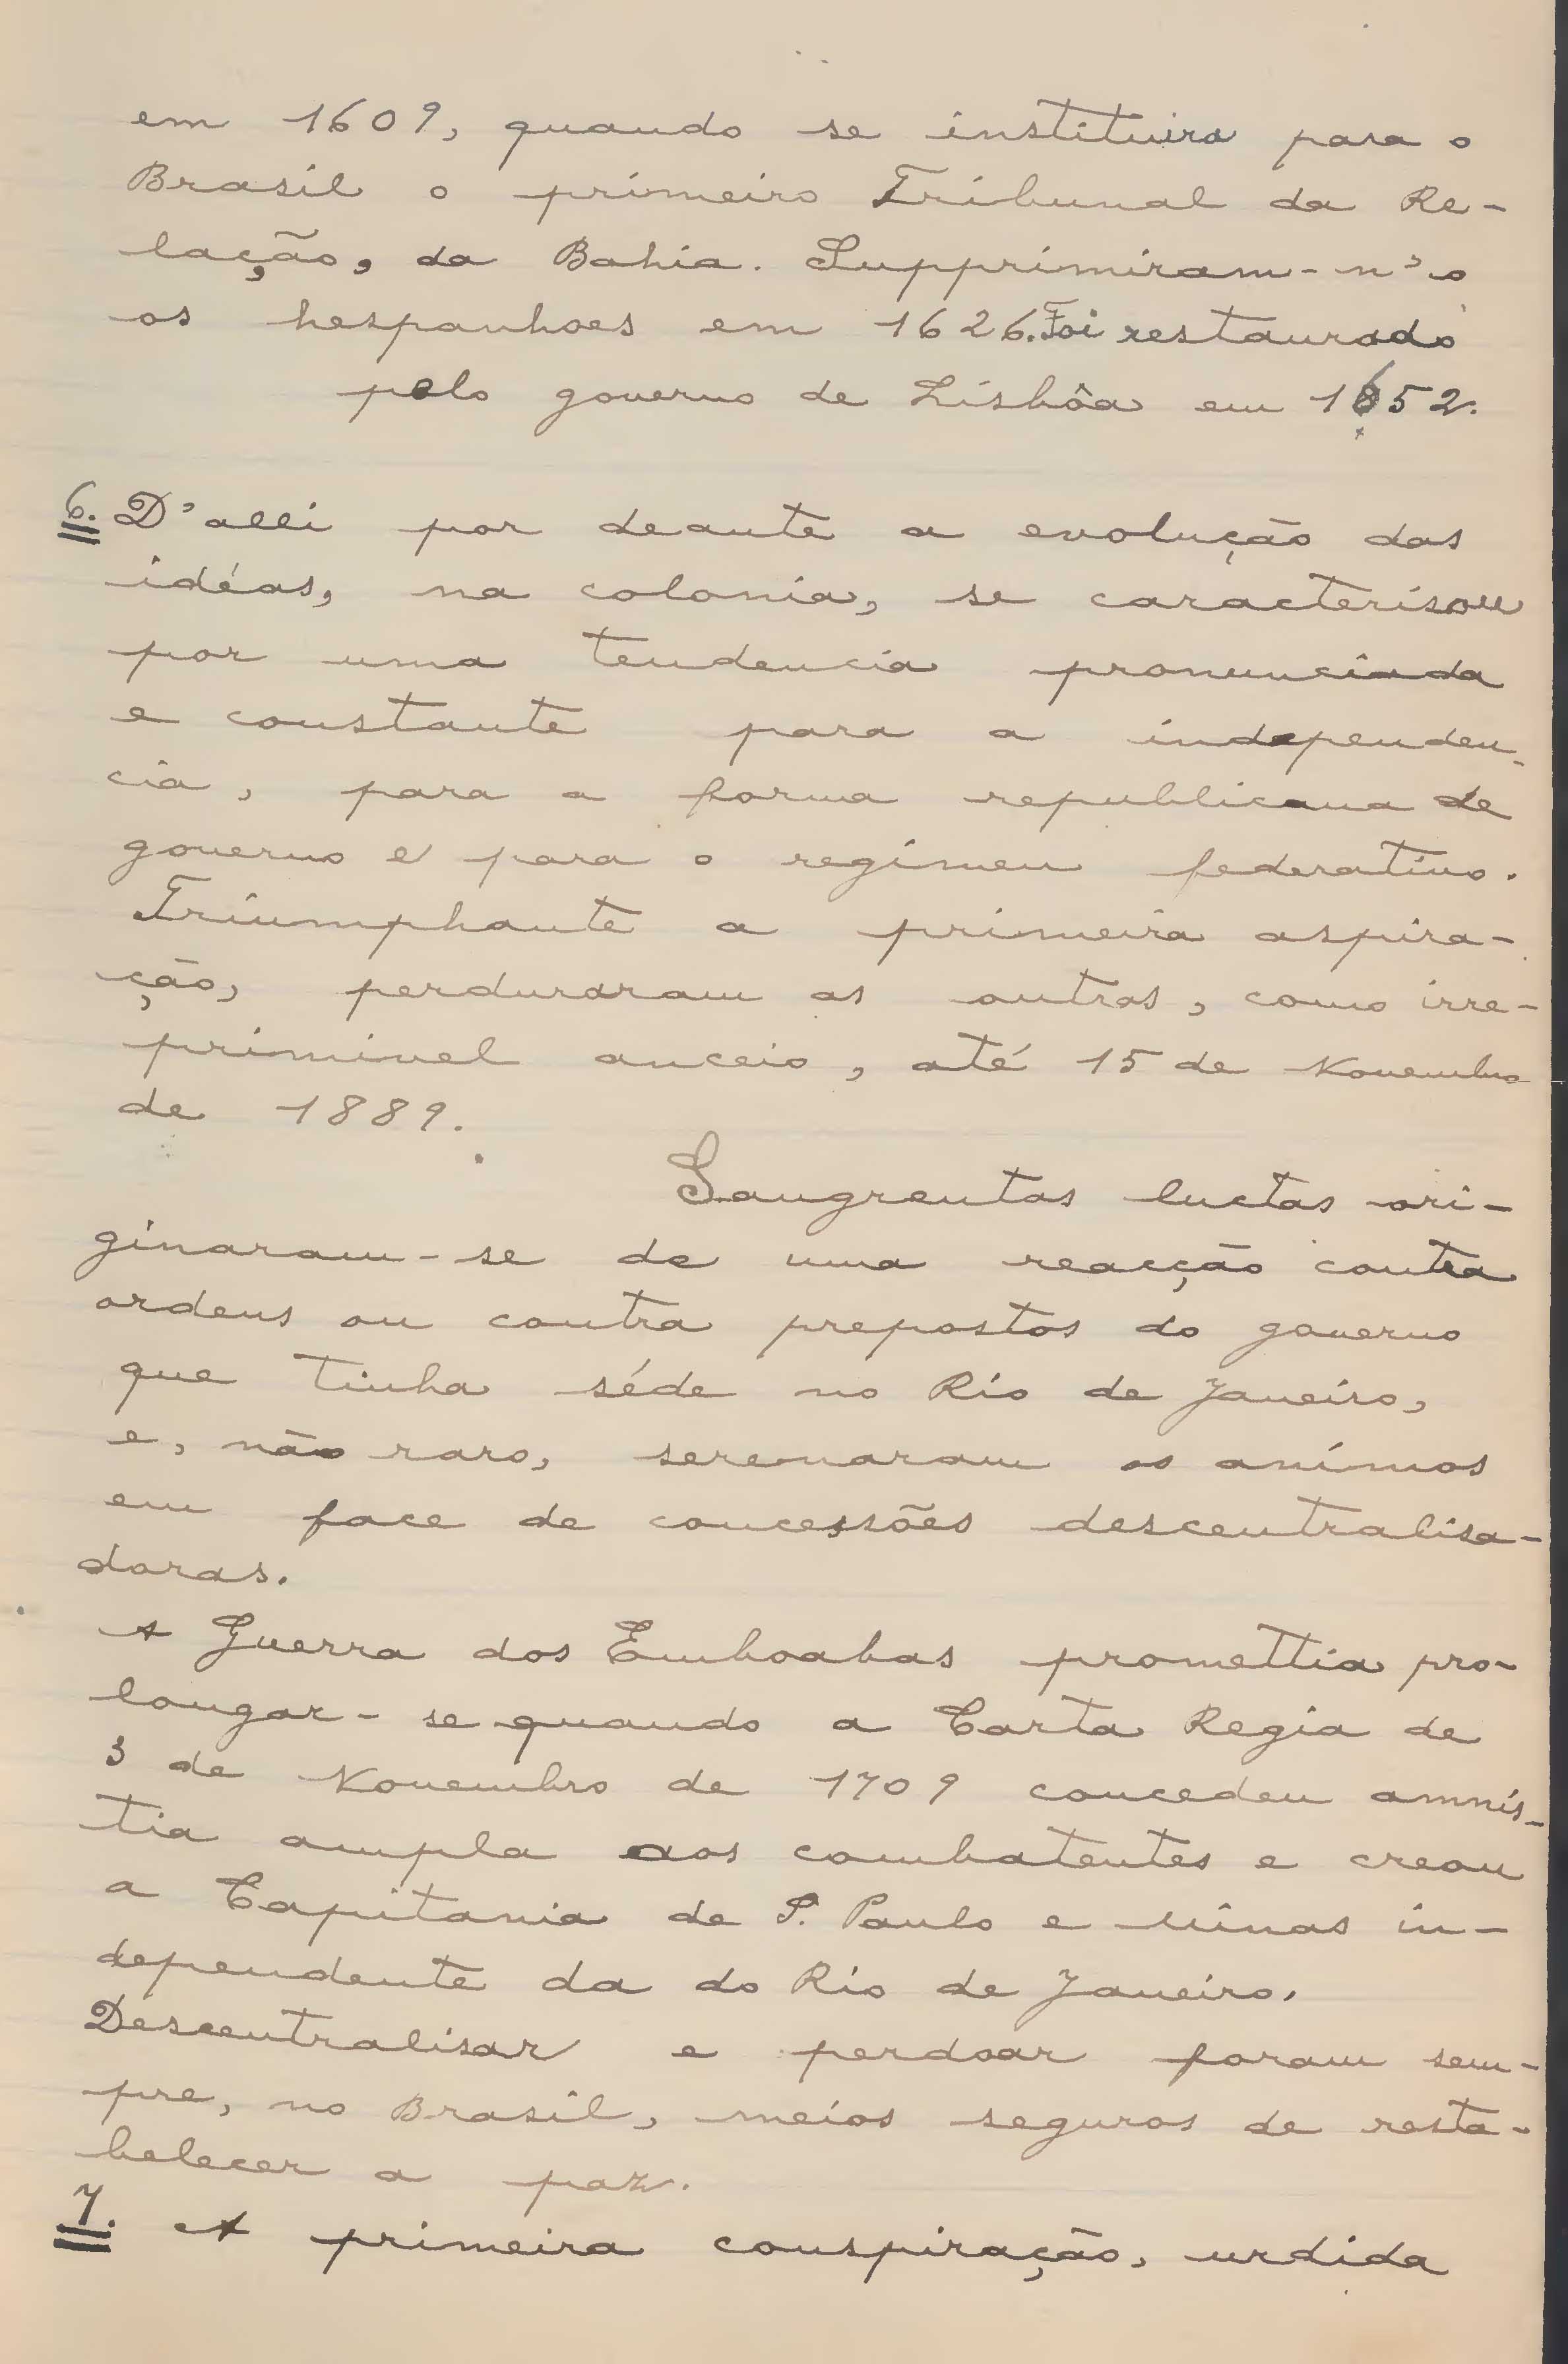 em 1609, quando se instituira para o
Brasil o primeiro Tribunal da Re-
lação, da Bahia. Supprimiram-n'o
os hespanhoes em 1626. Foi restaurado
pelo governo de Lisbôa em 1652.
6. D'alli por deante a evolução das
idéas, na colonia, se caracterisou
por uma tendencia pronunciada
e constante para a independen-
cia, para a forma republicana de
governo e para o regimen federativo.
Triumphante a primeira aspira-
ção, perduraram as outras, como irre-
primivel anceio, até 15 de Novembro
de 1889.
Sangrentas luctas ori-
ginaram-se de uma reacção contra
ordens ou contra prepostos do governo
que tinha séde no Rio de Janeiro,
e, não raro, serenaram os animos
em face de concessões descentralisa-
doras.
A Guerra dos Emboabas promettia pro-
longar-se quando a Carta Regia de
3 de Novembro de 1709 concedeu amnis-
tia ampla aos combatentes e creou
a Capitania de S. Paulo e Minas in-
dependente da do Rio de Janeiro.
Descentralisar e perdoar foram sem-
pre, no Brasil, meios seguros de resta-
belecer a paz.
7. A primeira conspiração, urdida